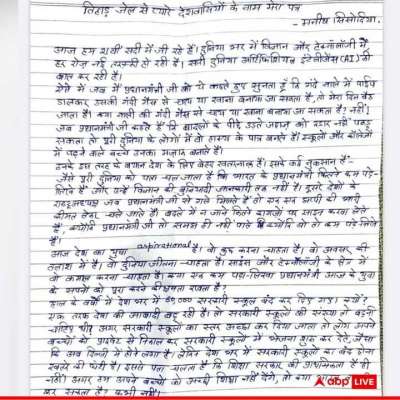 तिहाड़ जेल से प्यारे देशवासियों के नाम मेरा पत्र
- मनीष सिसोदिया
आज हम 21वीं सदी में जी रहे हैं। दुनिया भर में विज्ञान और टेक्नोलॉजी में
हर रोज़ नई तरक्की हो रही है। सारी दुनिया आर्टिफिशियल इंटेलीजेंस (AI) की
बात कर रही है।
ऐसे में जब मैं प्रधानमंत्री जी को ये कहते हुए सुनता हूँ कि गंदे नाले में पाईप
डालकर उसकी गंदी गैस से चाय या खाना बनाया जा सकता है, तो मेरा दिल बैठ
जाता है। क्या नाली की गंदी गैस से चाय या खाना बनाया जा सकता है? नहीं।
जब प्रधानमंत्री कहते हैं कि बादलों के पीछे उड़ते जहाज़ को रडार नहीं पकड़
सकता तो पूरी दुनिया के लोगों में वो हास्य के पात्र बनते हैं। स्कूलों और कॉलेजों
में पढ़ने वाले बच्चे उनका मज़ाक बनाते हैं।
उनके इस तरह के बयान देश के लिए बेहद खतरनाक हैं। इसके कई नुकसान हैं-
जैसे पूरी दुनिया को पता चल जाता है कि भारत के प्रधानमंत्री कितने कम पढ़े-
लिखे हैं और उन्हें विज्ञान की बुनियादी जानकारी तक नहीं है। दूसरे देशों के
राष्ट्राध्यक्ष जब प्रधानमंत्री जी से गले मिलते हैं तो एक एक झप्पी की भारी
कीमत लेकर चले जाते हैं। बदले में न जाने कितने कागज़ों पर साइन करवा लेते
हैं, क्योंकि प्रधानमंत्री जी तो समझ ही नहीं पाते क्योंकि वो तो कम पढ़े-लिखे
हैं।
आज देश का युवा aspirational है। वो कुछ करना चाहता है। वो अवसर की
तलाश में है। वो दुनिया जीतना चाहता है। साइंस और टेक्नोलॉजी के क्षेत्र में
वो कमाल करना चाहता है। क्या एक कम पढ़ा-लिखा प्रधानमंत्री आज के युवा
के सपनों को पूरा करने की क्षमता रखता है?
हाल के वर्षों में देश भर में 60,000 सरकारी स्कूल बंद कर दिए गए। क्यों?
एक तरफ देश की आबादी बढ़ रही है। तो सरकारी स्कूलों की संख्या तो बढ़नी
चाहिए थी? अगर सरकारी स्कूलों का स्तर अच्छा कर दिया जाता तो लोग अपने
बच्चों को प्राइवेट से निकाल कर सरकारी स्कूलों में भेजना शुरू कर देते, जैसा
कि अब दिल्ली में होने लगा है। लेकिन देश भर में सरकारी स्कूलों का बंद होना
खतरे की घंटी है। इससे पता चलता है कि शिक्षा सरकार की प्राथमिकता है ही
नहीं। अगर हम अपने बच्चों को अच्छी शिक्षा नहीं देंगे, तो क्या
कर सकता है? कभी नहीं।
abp LIVE